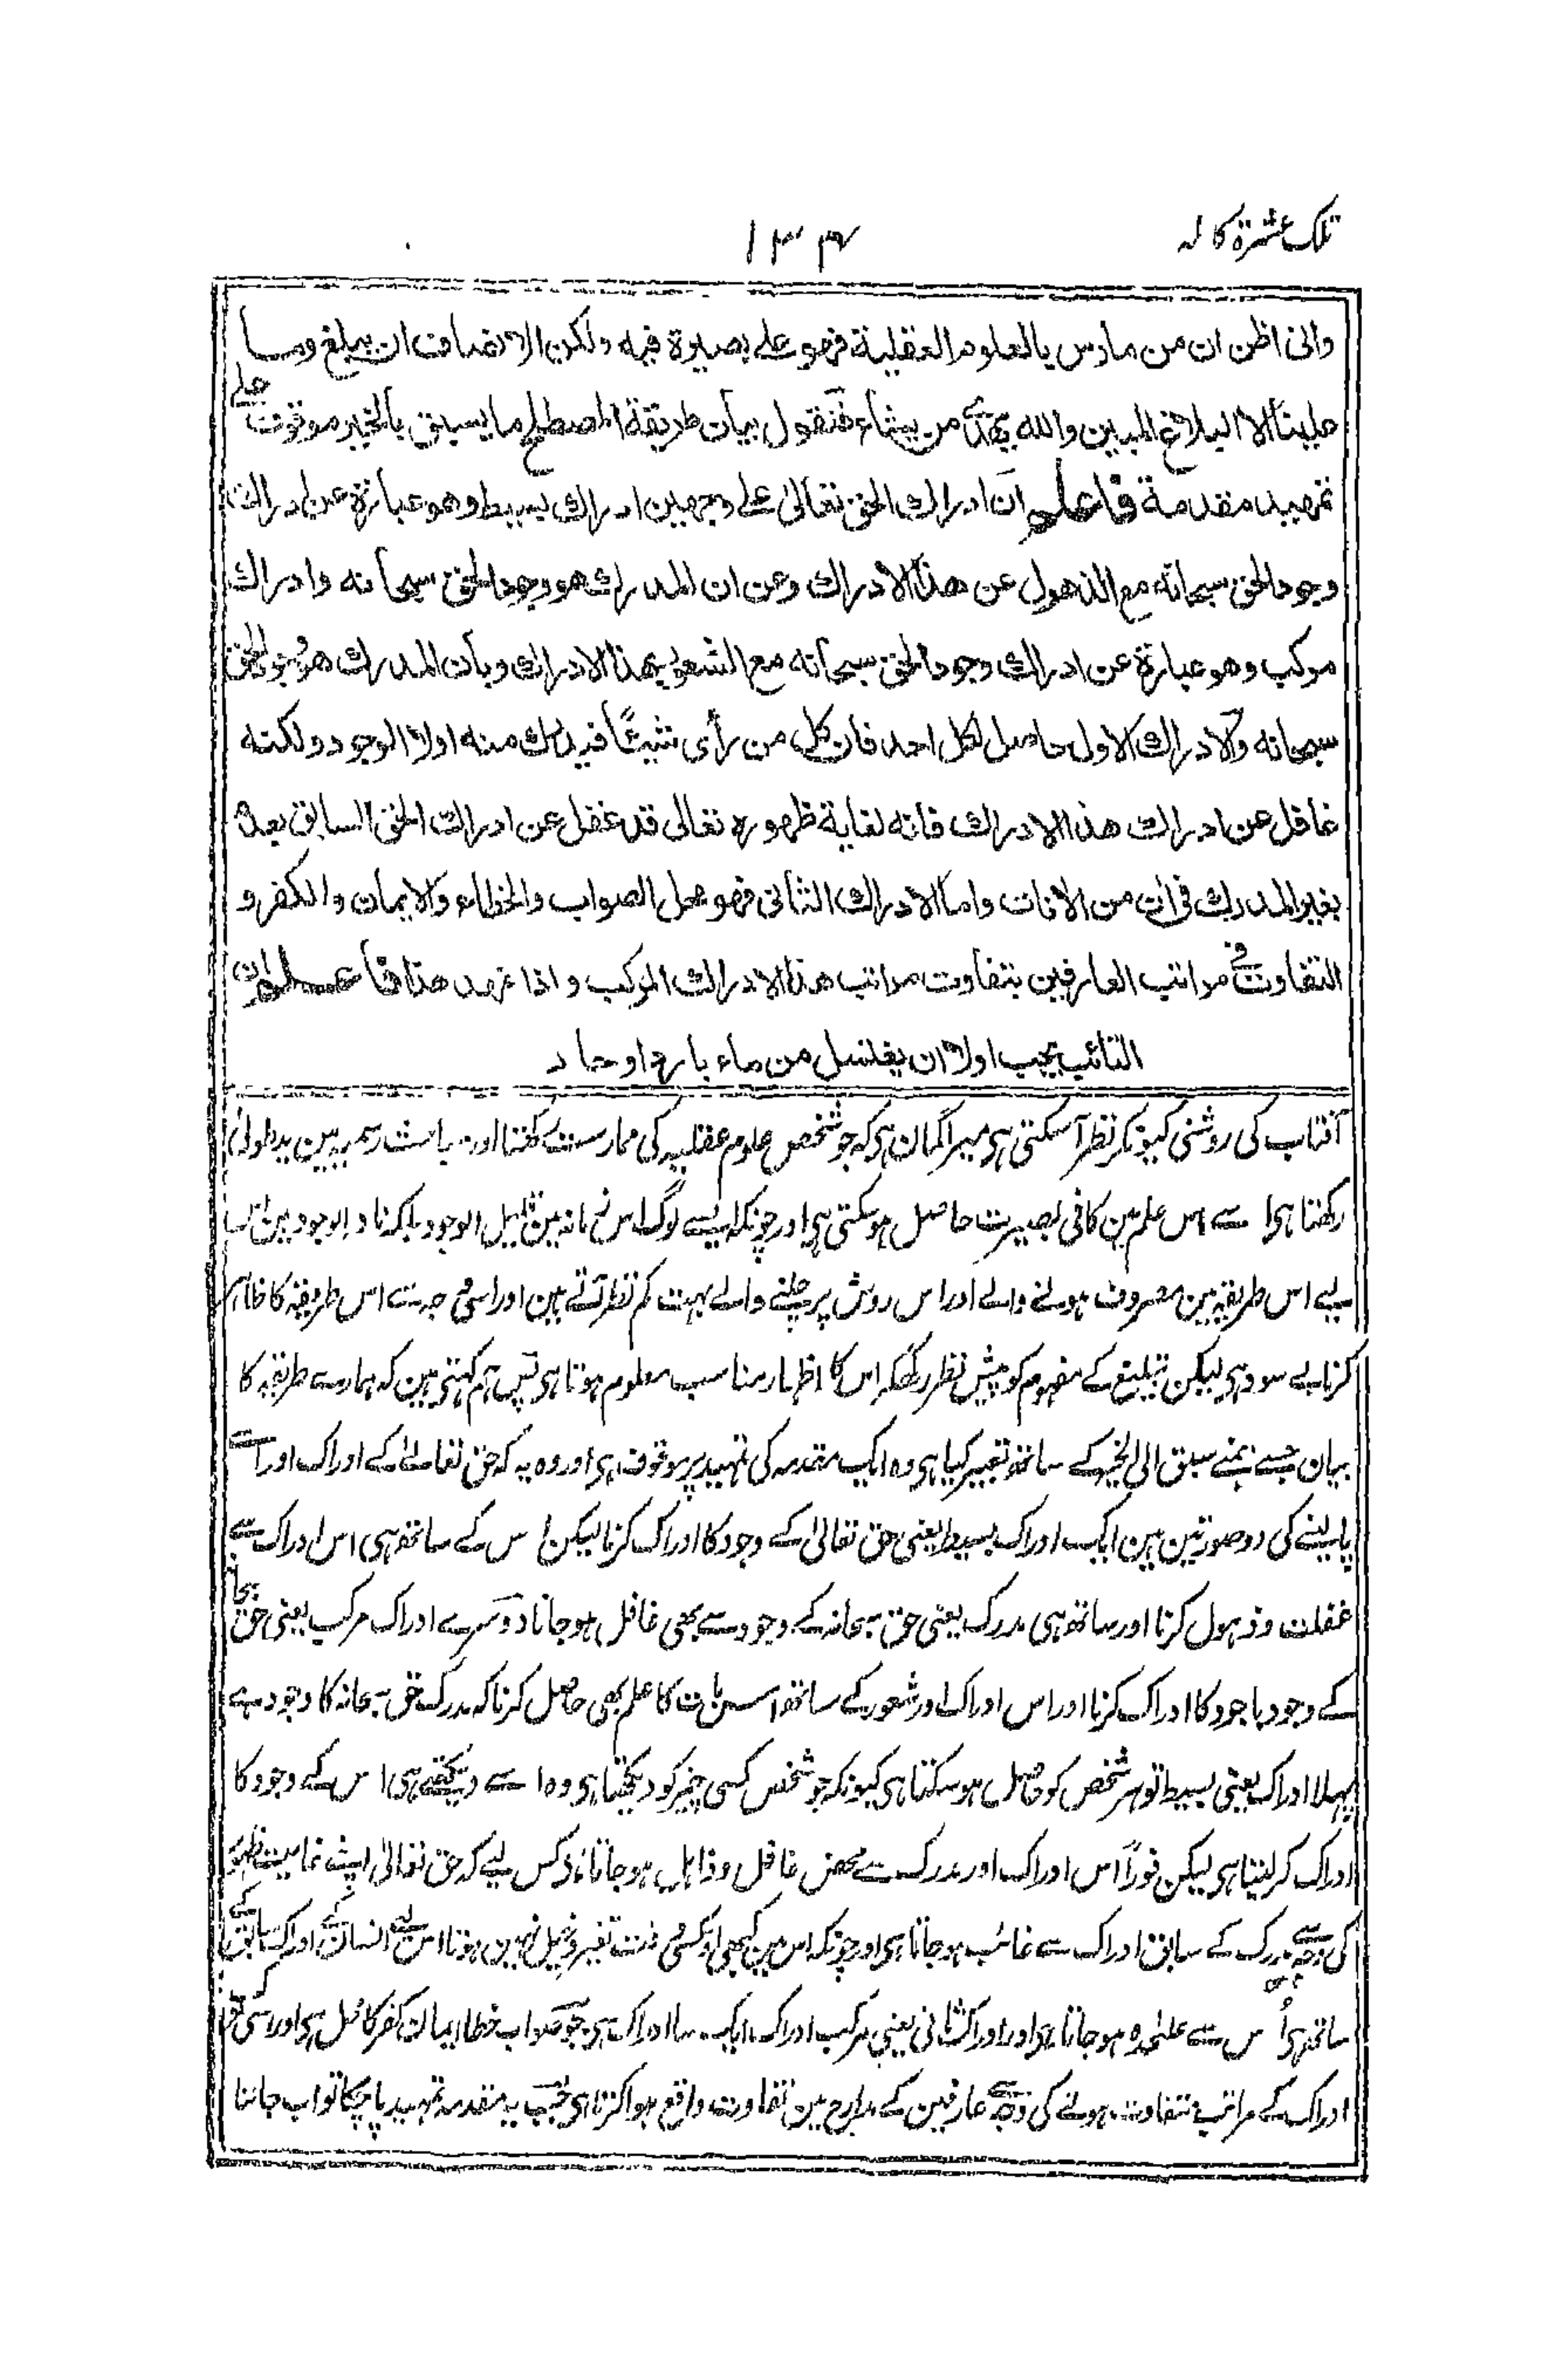 تلک عشرة کاملہ
۱۳۴
وانی اظن ان من مارس بالعلوم العقلیة فهو علی بصیرة فیه ولکن الانصاف ان یبلغ وما
علینا الا البلاغ المبین والله یهدی من یشاء فنقول بیان طریقة المصطلح ما یسبق بالخیر موقوف علی
تمهید مقدمة فاعلم ان ادراك الحق تعالی علی وجهین ادراك بسیط وهو عبارة عن ادراك
وجود الحق سبحانه مع الذهول عن هذا الادراك وعن ان المدرك هو وجود الحق سبحانه وادراك
مرکب وهو عبارة عن ادراك وجود الحق سبحانه مع الشعور بهذا الادراك وبان المدرك هو وجود الحق
سبحانه والادراك الاول حاصل لکل احد فان کل من رأی شیئا فیدرك منه اولا الوجود ولکنه
غافل عن ادراك هذا الادراك فانه لغایة ظهوره تعالی قد غفل عن ادراك الحق السابق بعده
بغیر المدرك فی ان من الانات واما الادراك الثانی فهو محل الصواب والخطاء والایمان والکفر و
التفاوت فی مراتب العارفین بتفاوت مراتب هذا الادراك المرکب واذا تمهد هذا فاعلم ان
التائب یجب اولا ان یغتسل من ماء بارد او حار
آفتاب کی روشنی کیونکر نظر آسکتی ہی میرا گمان ہی کہ جو شخص علوم عقلیہ کی ممارست رکھتا اور ریاست رسمیہ مین ید طولیٰ
رکھتا ہی اسے اس علم مین کافی بصیرت حاصل ہوسکتی ہی اور چونکہ ایسے لوگ اس زمانہ مین قلیل الوجود بلکہ نادر الوجود ہین اس
لیے اس طریقہ مین مصروف ہونے والے اور اس روش پر چلنے والے بہت کم نظر آتے ہین اور اسی وجہ سے اس طریقہ کا ظاہر
کرنا بے سود ہی لیکن تبلیغ کے مفہوم کو پیش نظر رکھکر اس کا اظہار مناسب معلوم ہوتا ہی پس ہم کہتی ہین کہ ہمارے طریقہ کا
بیان جسے ہمنے سبق الی الخیر کے ساتھ تعبیر کیا ہی وہ ایک مقدمہ کی تمہید پر موقوف ہی اور وہ یہ کہ حق تعالیٰ کے ادراک اور اسے
پالینے کی دو صورتین ہین ایک ادراک بسیط یعنی حق تعالیٰ کے وجود کا ادراک کرنا لیکن اس کے ساتھ ہی اس ادراک سے
غفلت و ذہول کرنا اور ساتھ ہی مدرک یعنی حق سبحانہ کے وجود سے بھی غافل ہو جانا دوسرے ادراک مرکب یعنی حق سبحانہ
کے وجود باجود کا ادراک کرنا اور اس ادراک اور شعور کے ساتھ اس بات کا علم بھی حاصل کرنا کہ مدرک حق سبحانہ کا وجود ہے
پہلا ادراک یعنی بسیط تو ہر شخص کو حاصل ہوسکتا ہی کیونکہ جو شخص کسی چیز کو دیکھتا ہی وہ اسے دیکھتے ہی اس کے وجود کا
ادراک کرلیتا ہی لیکن فوراً اس ادراک اور مدرک سے محض غافل و ذاہل ہو جاتا ہی کس لیے کہ حق تعالیٰ اپنے غایت ظہور
کی وجہ سے مدرک کے سابق ادراک سے غائب ہو جاتا ہی اور چونکہ اس مین کبھی اور کسی وقت تغیر و تبدل نہین ہوتا اس لیے انسان کے ادراک سابق کے
ساتھ ہی اُس سے علیٰحدہ ہو جاتا ہی اور ادراک ثانی یعنی مرکب ادراک ایک ایسا ادراک ہی جو صواب خطا ایمان کفر کا محل ہی اور اسی
ادراک کے مراتب متفاوت ہونے کی وجہ سے عارفین کے مدارج مین تفاوت واقع ہوا کرتا ہی جب یہ مقدمہ تمہید پا چکا تو اب جاننا